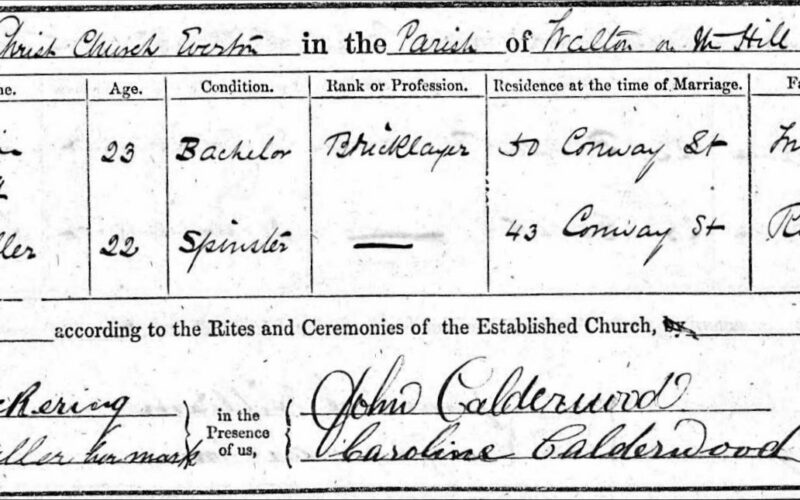 Christ Church Everton in the Parish of Walton on the Hill
Age. Condition. Rank or Profession. Residence at the time of Marriage.
23 Bachelor Bricklayer 50 Conway St
22 Spinster — 43 Conway St
according to the Rites and Ceremonies of the Established Church, by
ckering in the Presence of us, John Calderwood
iller her mark Caroline Calderwood